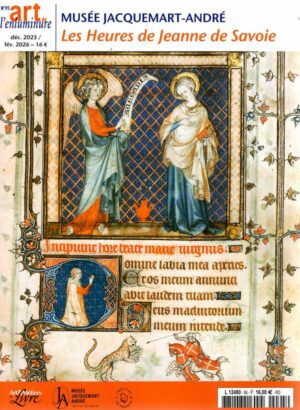 N°95
art de l'enluminure
déc. 2025 /
fév. 2026 – 16 €
MUSÉE JACQUEMART-ANDRÉ
Les Heures de Jeanne de Savoie
Incipiunt hore beate marie virginis
Domine labia mea aperies.
Et os meum annunci
abit laudem tuam.
Deus in adiutorium
meum intende.
Art & Métiers
du Livre
MUSÉE
JACQUEMART
ANDRÉ
L 12400 - 95 - F: 16,00 € - RD